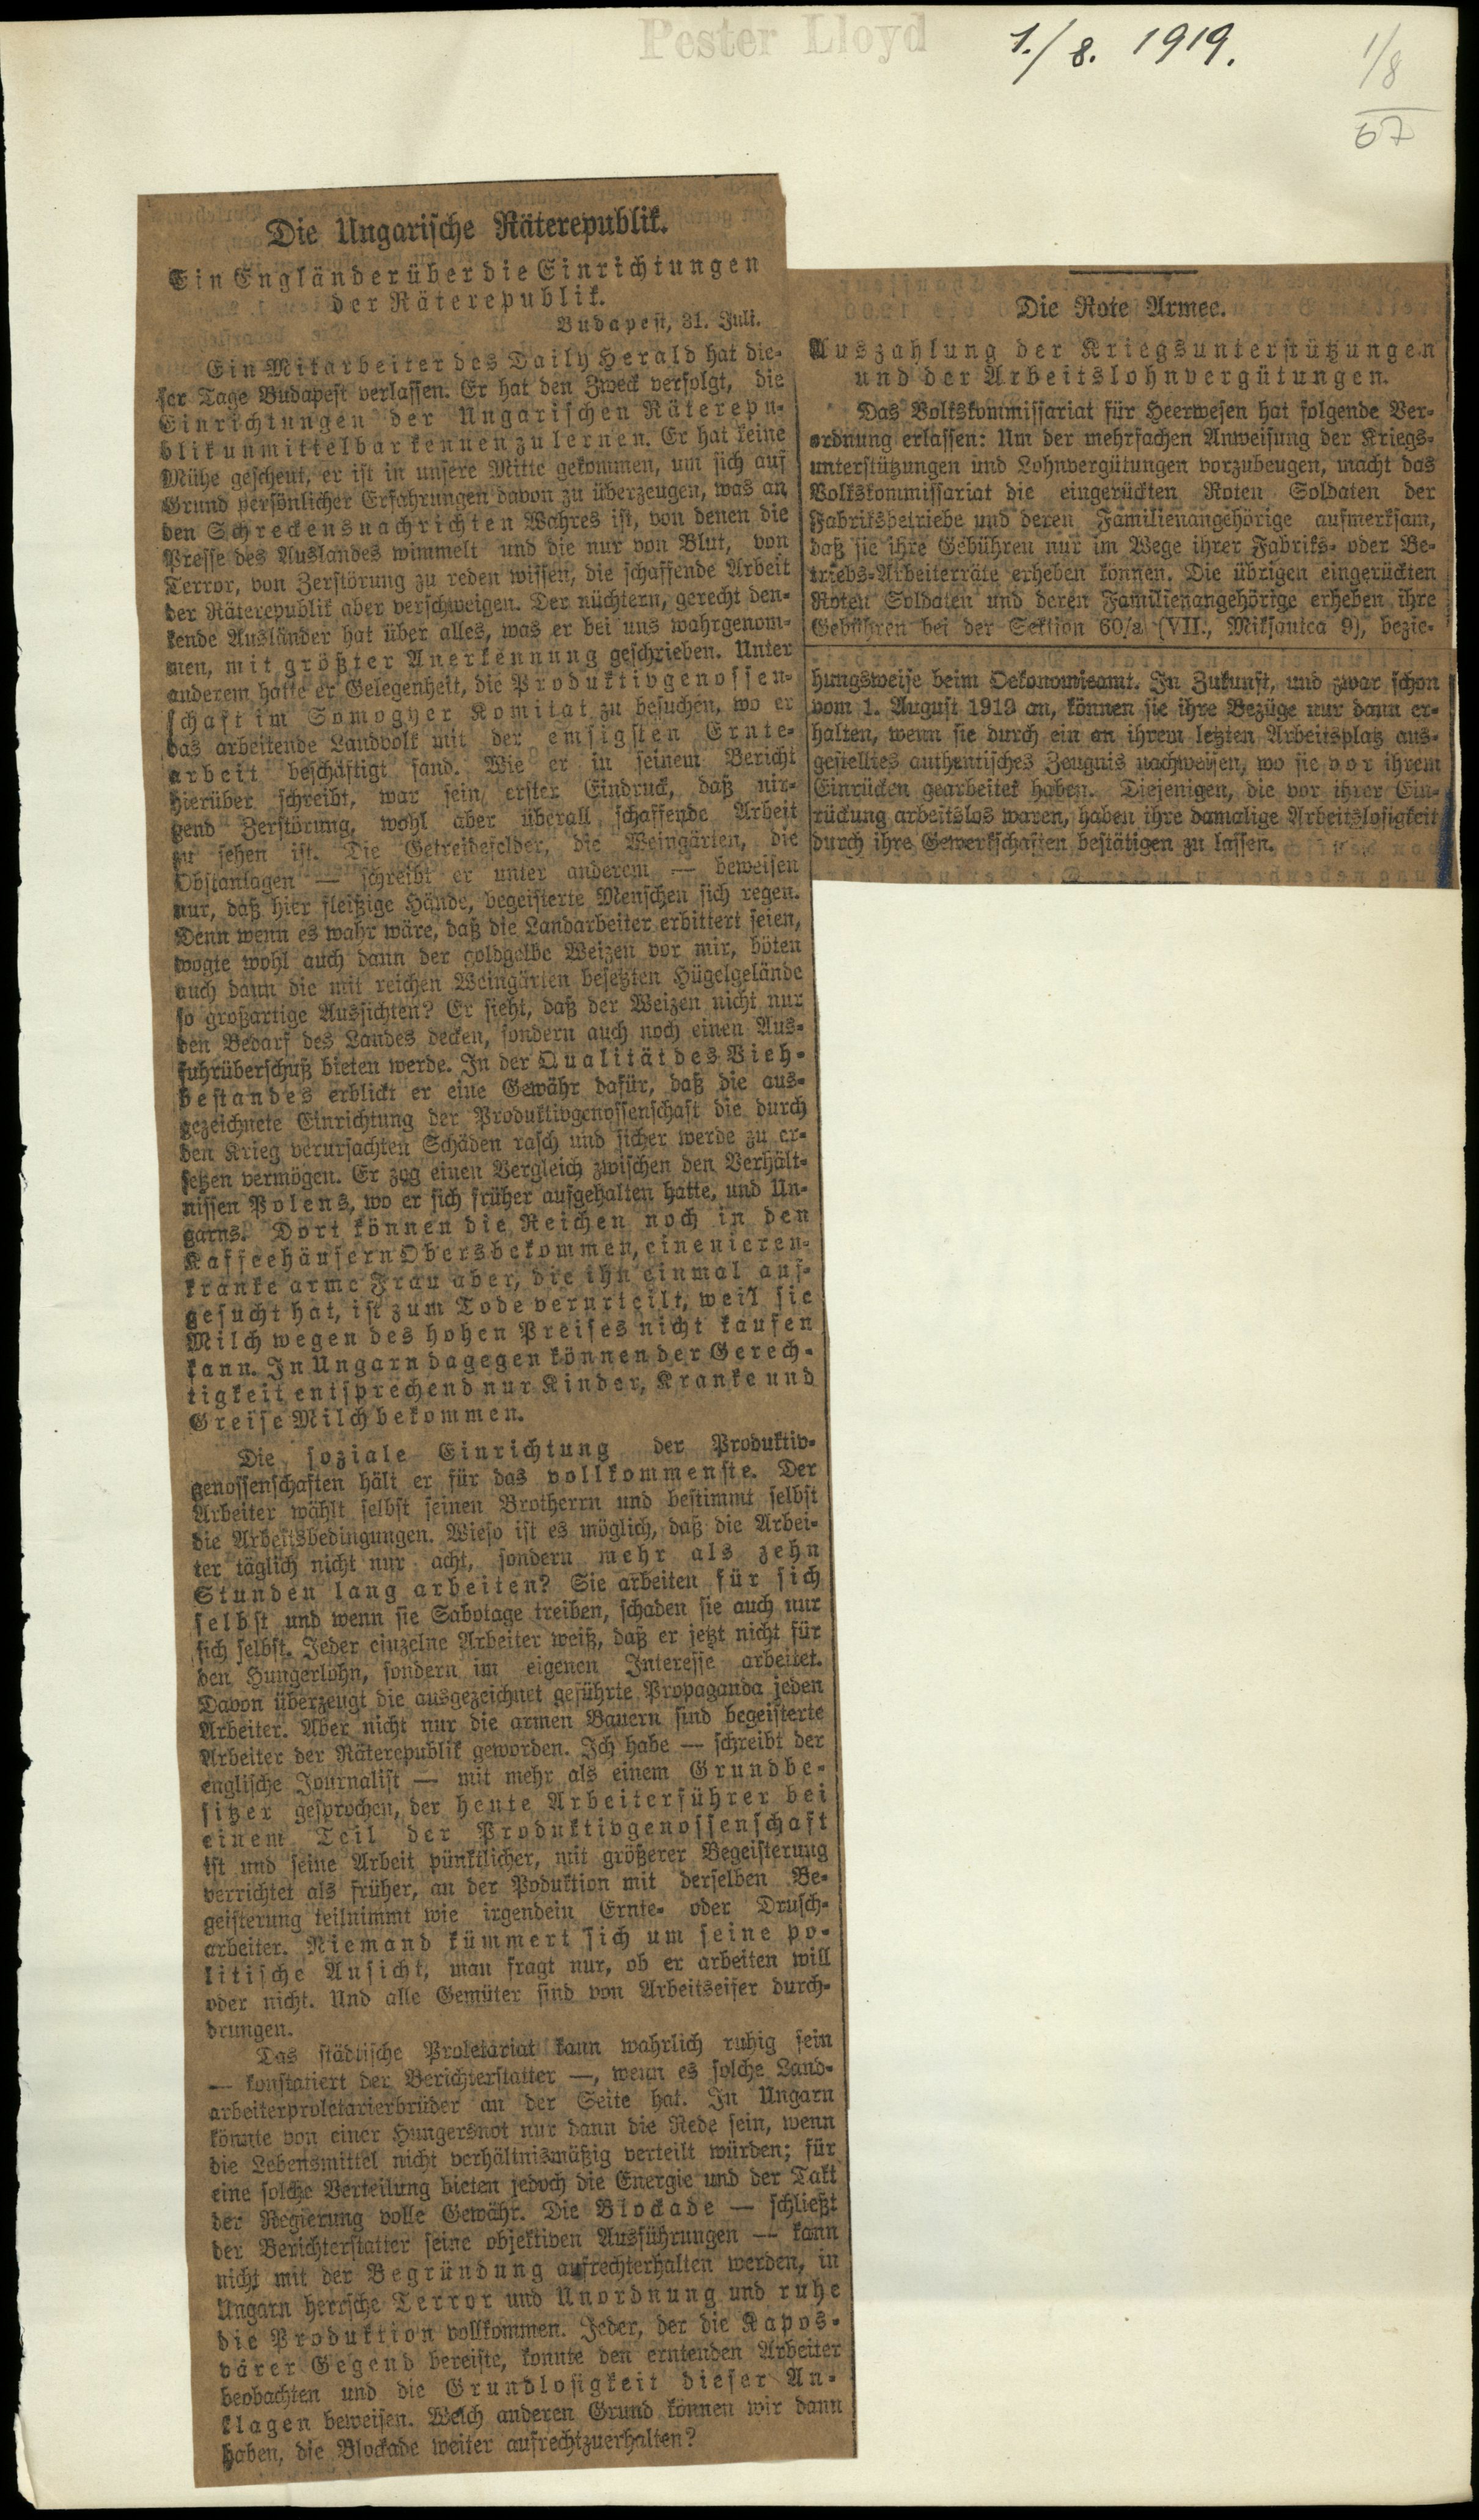 Pester Lloyd
1./8. 1919.
1/8
67
Die Ungarische Räterepublik.
Ein Engländer über die Einrichtungen
der Räterepublik.
Budapest, 31. Juli.
Ein Mitarbeiter des Daily Herald hat die-
ser Tage Budapest verlassen. Er hat den Zweck verfolgt, die
Einrichtungen der Ungarischen Räterepu-
blik unmittelbar kennen zu lernen. Er hat keine
Mühe gescheut, er ist in unsere Mitte gekommen, um sich auf
Grund persönlicher Erfahrungen davon zu überzeugen, was an
den Schreckensnachrichten Wahres ist, von denen die
Presse des Auslandes wimmelt und die nur von Blut, von
Terror, von Zerstörung zu reden wissen, die schaffende Arbeit
der Räterepublik aber verschweigen. Der nüchtern, gerecht den-
kende Ausländer hat über alles, was er bei uns wahrgenom-
men, mit größter Anerkennung geschrieben. Unter
anderem hatte er Gelegenheit, die Produktivgenossen-
schaft im Somogyer Komitat zu besuchen, wo er
das arbeitende Landvolk mit der emsigsten Ernte-
arbeit beschäftigt fand. Wie er in seinem Bericht
hierüber schreibt, war sein erster Eindruck, daß nir-
gend Zerstörung, wohl aber überall schaffende Arbeit
zu sehen ist. Die Getreidefelder, die Weingärten, die
Obstanlagen — schreibt er unter anderem — beweisen
nur, daß hier fleißige Hände, begeisterte Menschen sich regen.
Denn wenn es wahr wäre, daß die Landarbeiter erbittert seien,
wogte wohl auch dann der goldgelbe Weizen vor mir, böten
auch dann die mit reichen Weingärten besetzten Hügelgelände
so großartige Aussichten? Er sieht, daß der Weizen nicht nur
den Bedarf des Landes decken, sondern auch noch einen Aus-
fuhrüberschuß bieten werde. In der Qualität des Vieh-
bestandes erblickt er eine Gewähr dafür, daß die aus-
gezeichnete Einrichtung der Produktivgenossenschaft die durch
den Krieg verursachten Schäden rasch und sicher werde zu er-
setzen vermögen. Er zog einen Vergleich zwischen den Verhält-
nissen Polens, wo er sich früher aufgehalten hatte, und Un-
garns. Dort können die Reichen noch in den
Kaffeehäusern Obers bekommen, eine nieren-
kranke arme Frau aber, die ihn einmal auf-
gesucht hat, ist zum Tode verurteilt, weil sie
Milch wegen des hohen Preises nicht kaufen
kann. In Ungarn dagegen können der Gerech-
tigkeit entsprechend nur Kinder, Kranke und
Greise Milch bekommen.
Die soziale Einrichtung der Produktiv-
genossenschaften hält er für das vollkommenste. Der
Arbeiter wählt selbst seinen Brotherrn und bestimmt selbst
die Arbeitsbedingungen. Wieso ist es möglich, daß die Arbei-
ter täglich nicht nur acht, sondern mehr als zehn
Stunden lang arbeiten? Sie arbeiten für sich
selbst und wenn sie Sabotage treiben, schaden sie auch nur
sich selbst. Jeder einzelne Arbeiter weiß, daß er jetzt nicht für
den Hungerlohn, sondern im eigenen Interesse arbeitet.
Davon überzeugt die ausgezeichnet geführte Propaganda jeden
Arbeiter. Aber nicht nur die armen Bauern sind begeisterte
Arbeiter der Räterepublik geworden. Ich habe — schreibt der
englische Journalist — mit mehr als einem Grundbe-
sitzer gesprochen, der heute Arbeiterführer bei
einem Teil der Produktivgenossenschaft
ist und seine Arbeit pünktlicher, mit größerer Begeisterung
verrichtet als früher, an der Poduktion mit derselben Be-
geisterung teilnimmt wie irgendein Ernte- oder Drusch-
arbeiter. Niemand kümmert sich um seine po-
litische Ansicht, man fragt nur, ob er arbeiten will
oder nicht. Und alle Gemüter sind von Arbeitseifer durch-
drungen.
Das städtische Proletariat kann wahrlich ruhig sein
— konstatiert der Berichterstatter —, wenn es solche Land-
arbeiterproletarierbrüder an der Seite hat. In Ungarn
könnte von einer Hungersnot nur dann die Rede sein, wenn
die Lebensmittel nicht verhältnismäßig verteilt würden; für
eine solche Verteilung bieten jedoch die Energie und der Takt
der Regierung volle Gewähr. Die Blockade — schließt
der Berichterstatter seine objektiven Ausführungen — kann
nicht mit der Begründung aufrechterhalten werden, in
Ungarn herrsche Terror und Unordnung und ruhe
die Produktion vollkommen. Jeder, der die Kapos-
várer Gegend bereiste, konnte den erntenden Arbeiter
beobachten und die Grundlosigkeit dieser An-
klagen beweisen. Welch anderen Grund können wir dann
haben, die Blockade weiter aufrechtzuerhalten?
Die Rote Armee.
Auszahlung der Kriegsunterstützungen
und der Arbeitslohnvergütungen.
Das Volkskommissariat für Heerwesen hat folgende Ver-
ordnung erlassen: Um der mehrfachen Anweisung der Kriegs-
unterstützungen und Lohnvergütungen vorzubeugen, macht das
Volkskommissariat die eingerückten Roten Soldaten der
Fabriksbetriebe und deren Familienangehörige aufmerksam,
daß sie ihre Gebühren nur im Wege ihrer Fabriks- oder Be-
triebs-Arbeiterräte erheben können. Die übrigen eingerückten
Roten Soldaten und deren Familienangehörige erheben ihre
Gebühren bei der Sektion 60/a (VII., Miksautca 9), bezie-
hungsweise beim Oekonomieamt. In Zukunft, und zwar schon
vom 1. August 1919 an, können sie ihre Bezüge nur dann er-
halten, wenn sie durch ein an ihrem letzten Arbeitsplatz aus-
gestelltes authentisches Zeugnis nachweisen, wo sie vor ihrem
Einrücken gearbeitet haben. Diejenigen, die vor ihrer Ein-
rückung arbeitslos waren, haben ihre damalige Arbeitslosigkeit
durch ihre Gewerkschaften bestätigen zu lassen.